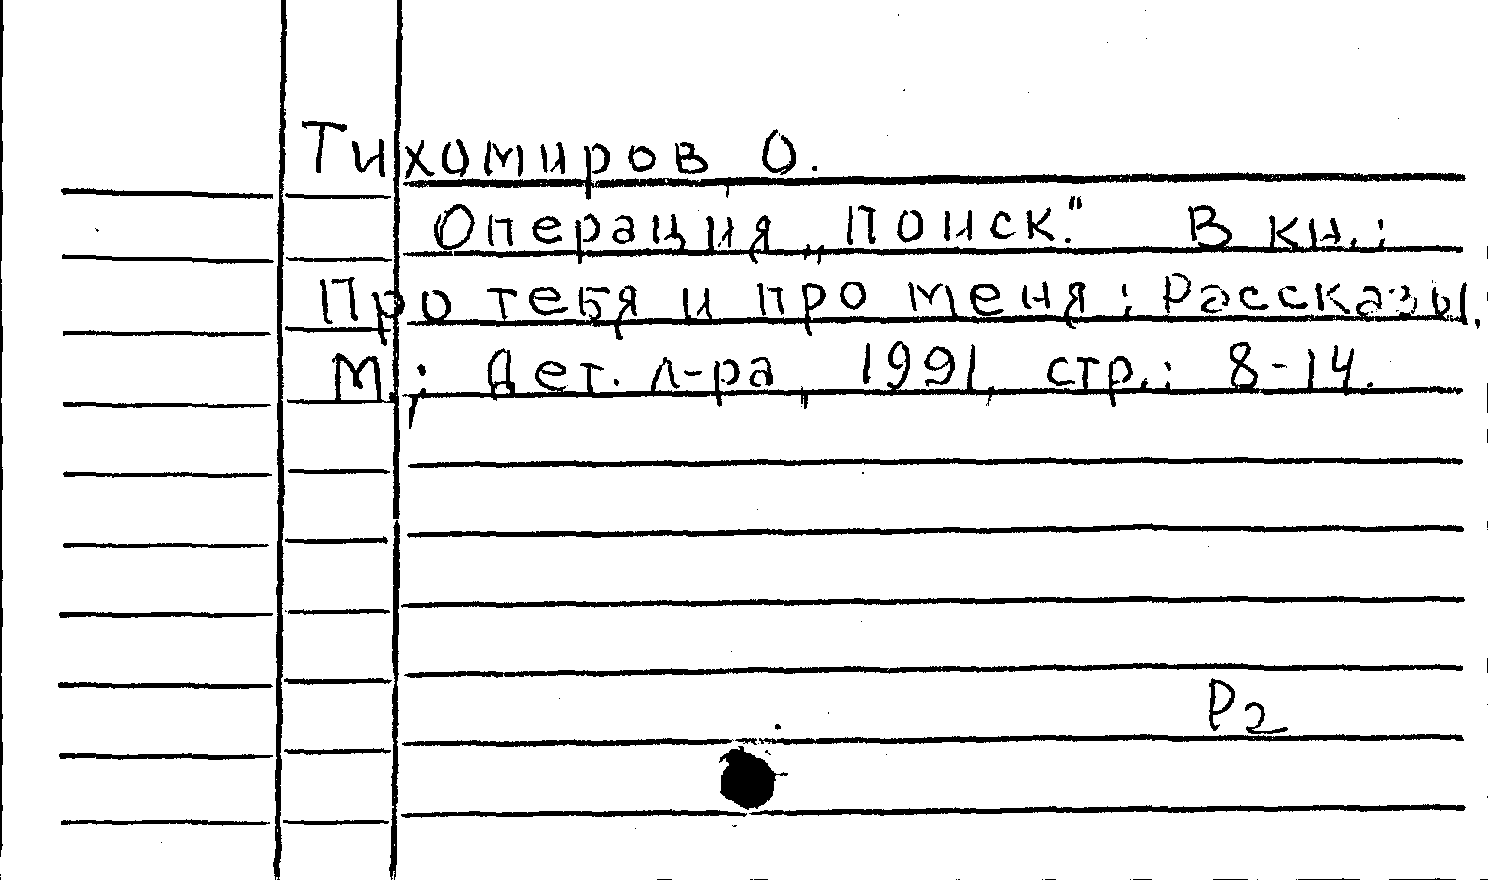 Тихомиров О.
Операция „Поиск." В кн.:
Про тебя и про меня: Рассказы,
М.: Дет. л-ра, 1991, стр.: 8-14.
Р2